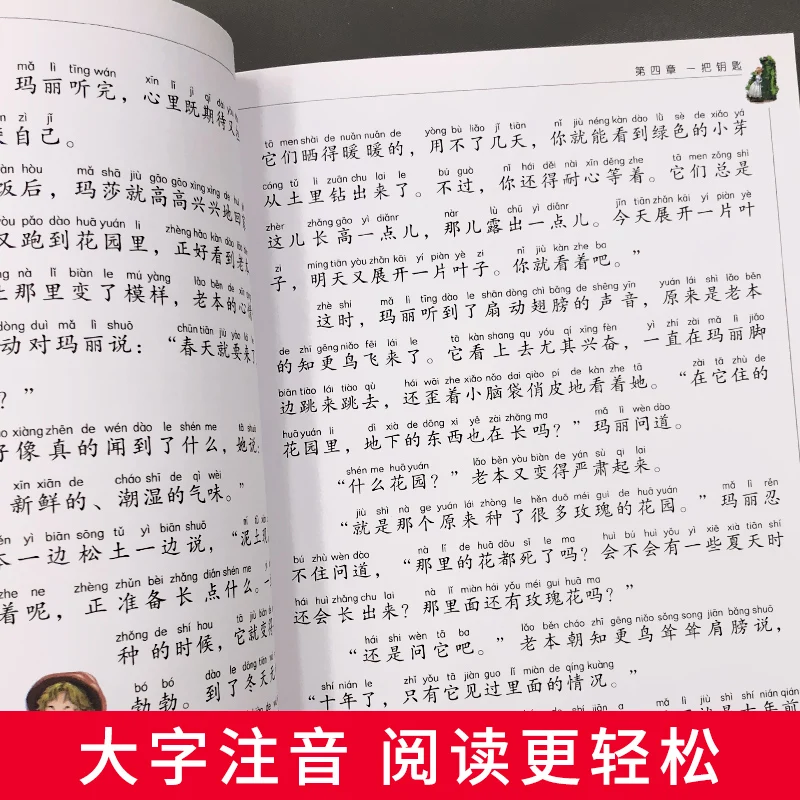 mǎ lì tīng wán
玛丽听完，心里既期待又
zì jǐ
自己。
hòu mǎ shā jiù gāo gāo xìng xìng de
饭后，玛莎就高高兴兴地回
yòu pǎo dào huā yuán lǐ zhèng hǎo kàn dào lǎo
又跑到花园里，正好看到老
nà lǐ biàn le mú yàng lǎo běn de xīn
那里变了模样，老本的心
dòng duì mǎ lì shuō chūn tiān jiù yào lái
动对玛丽说：“春天就要来了
？”
xiàng zhēn de wén dào le shén me tā shuō
好像真的闻到了什么，她说：
xīn xiān de cháo shī de qì wèi
新鲜的、潮湿的气味。”
běn yì biān sōng tǔ yì biān shuō
本一边松土一边说，“泥土
zhe ne zhèng zhǔn bèi zhǎng diǎn shén me
着呢，正准备长点什么。
zhòng de shí hou
种的时候，它就变得
bó bó dào le dōng tiān
勃勃。到了冬天
第四章 一把钥匙
tā men shài de nuǎn nuǎn de yòng bù liǎo jǐ tiān nǐ jiù néng kàn dào lǜ sè de xiǎo yá
它们晒得暖暖的，用不了几天，你就能看到绿色的小芽
cóng tǔ lǐ zuān chu lai le bú guò nǐ hái děi nài xīn děng zhe tā men zǒng shì
从土里钻出来了。不过，你还得耐心等着。它们总是
zhèr zhǎng gāo yì diǎnr nàr lù chū yì diǎnr jīn tiān zhǎn kāi yí piàn yè
这儿长高一点儿，那儿露出一点儿。今天展开一片叶
zi míng tiān yòu zhǎn kāi yí piàn yè zi nǐ jiù kàn zhe ba
子，明天又展开一片叶子。你就看着吧。”
zhè shí mǎ lì tīng dào le shān dòng chì bǎng de shēng yīn yuán lái shì lǎo běn
这时，玛丽听到了扇动翅膀的声音，原来是老本
de zhī gēng niǎo fēi lái le tā kàn shang qu yóu qí xīng fèn yì zhí zài mǎ lì jiǎo
的知更鸟飞来了。它看上去尤其兴奋，一直在玛丽脚
biān tiào lái tiào qù hái wāi zhe xiǎo nǎo dai qiào pí de kàn zhe tā zài tā zhù de
边跳来跳去，还歪着小脑袋俏皮地看着她。“在它住的
huā yuán lǐ dì xià de dōng xi yě zài zhǎng ma mǎ lì wèn dào
花园里，地下的东西也在长吗？”玛丽问道。
shén me huā yuán lǎo běn yòu biàn de yán sù qi lai
“什么花园？”老本又变得严肃起来。
jiù shì nà ge yuán lái zhòng le hěn duō méi gui de huā yuán mǎ lì rěn
“就是那个原来种了很多玫瑰的花园。”玛丽忍
bú zhù wèn dào nà lǐ de huā dōu sǐ le ma huì bu huì yǒu yì xiē xià tiān shí
不住问道，“那里的花都死了吗？会不会有一些夏天时
hái huì zhǎng chu lai nà lǐ miàn hái yǒu méi gui huā ma
还会长出来？那里面还有玫瑰花吗？”
hái shi wèn tā ba lǎo běn cháo zhī gēng niǎo sǒng sǒng jiān bǎng shuō
“还是问它吧。”老本朝知更鸟耸耸肩膀说，
shí nián le zhǐ yǒu tā jiàn guo lǐ miàn de qíng kuàng
“十年了，只有它见过里面的情况。”
大字注音 阅读更轻松